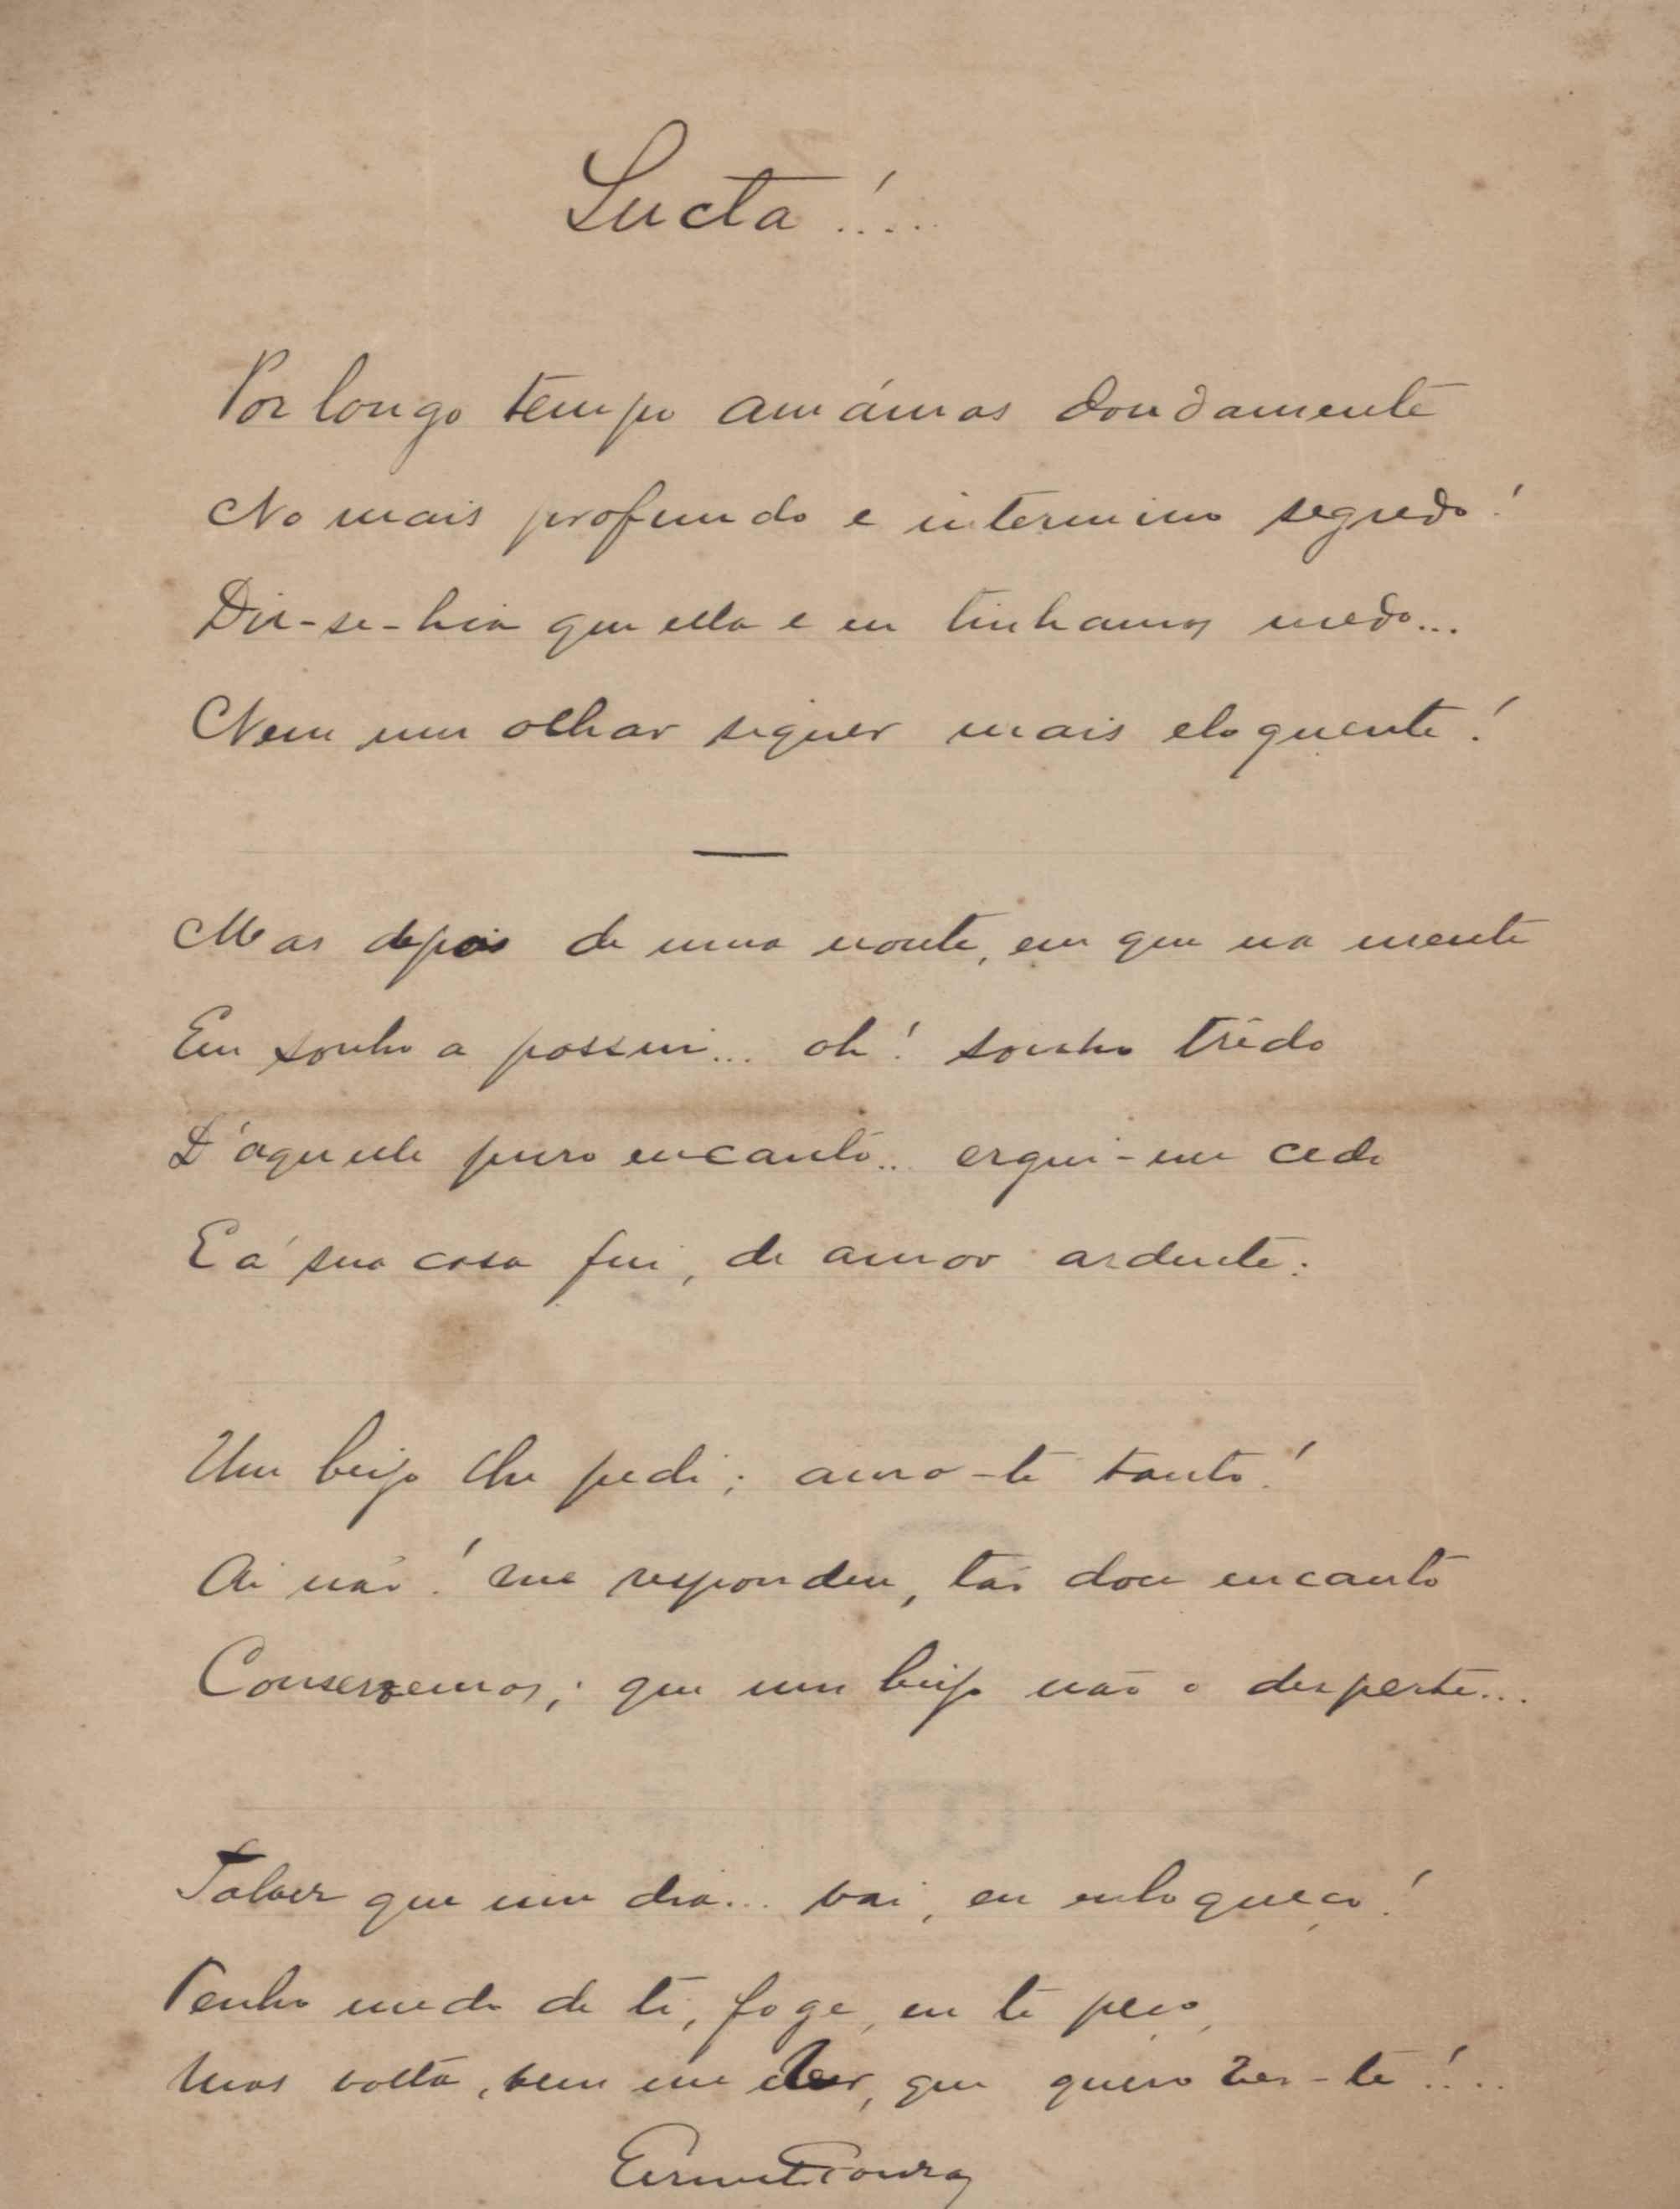 Lucta!...
Por longo tempo amámos doudamente
No mais profundo e intermino segredo!
Dir-se-hia que ella e eu tinhamos medo...
Nem um olhar siquer mais eloquente!
Mas depois de uma noute, em que na mente
Em sonho a possui... oh! sonho trêdo
D'aquelle puro encanto... ergui-me cedo
E á sua casa fui, de amor ardente:
Um beijo lhe pedi; amo-te tanto!
Ai não! me respondeu, tão doce encanto
Conservemos; que um beijo não o desperte...
Talvez que um dia... vai, eu enloqueço!
Tenho medo de ti, foge, eu te peço,
Mas volta, vem me ver, que quero ver-te!...